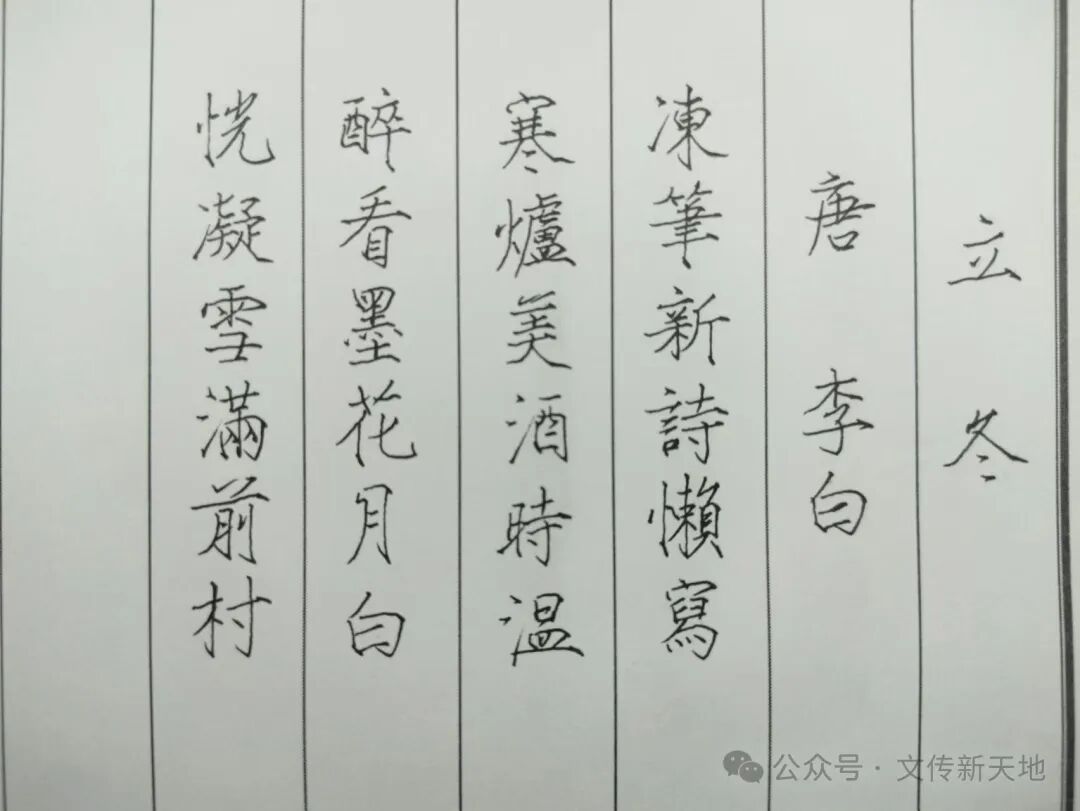 立冬
唐 李白
凍筆新詩懶寫
寒爐美酒時溫
醉看墨花月白
恍凝雪滿前村
公众号·文传新天地